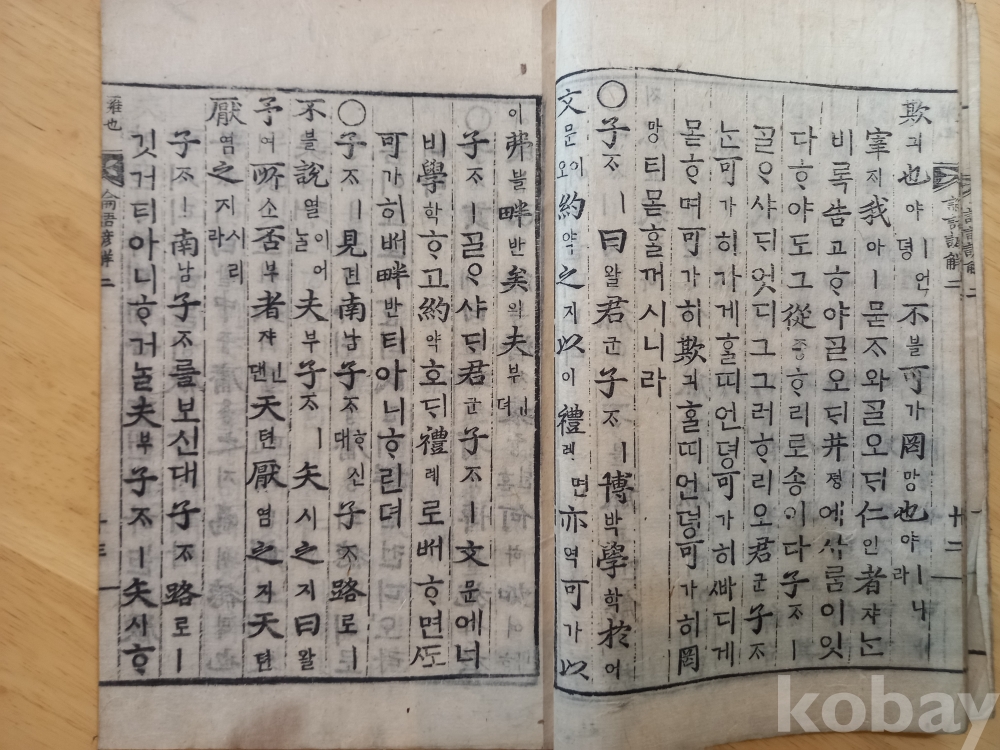 論語諺解二 十二
欺긔也야ㅣ언뎡不블可가罔망也야ㅣ니라
宰지我아ㅣ묻ᄌᆞ와ᄀᆞᆯ오ᄃᆡ仁인者쟈ᄂᆞᆫ
비록告고ᄒᆞ야ᄀᆞᆯ오ᄃᆡ井졍에사ᄅᆞᆷ이잇
다ᄒᆞ야도그從죵ᄒᆞ리로송이다子ᄌᆞㅣ
ᄀᆞᆯᄋᆞ샤ᄃᆡ엇디그그러ᄒᆞ리오君군子ᄌᆞ
ᄂᆞᆫ可가히가게ᄒᆞᆯᄯᅵ언뎡可가히ᄲᅡ디게
몯ᄒᆞ며可가히欺긔ᄒᆞᆯᄯᅵ언뎡可가히罔
망티몯ᄒᆞᆯ꺼시니라
○子ᄌᆞㅣ曰왈君군子ᄌᆞㅣ博박學학於어
文문이오約약之지以이禮례면亦역可가以
이弗블畔반矣의夫부ㅣㄴ뎌
子ᄌᆞㅣᄀᆞᆯᄋᆞ샤ᄃᆡ君군子ᄌᆞㅣ文문에너
비學학ᄒᆞ고約약호ᄃᆡ禮례로ᄡᅥᄒᆞ면ᄯᅩ
可가히ᄡᅥ畔반티아니ᄒᆞ린뎌
○子ᄌᆞㅣ見견南남子ᄌᆞᄒᆞ신대子ᄌᆞ路로ㅣ
不블說열이어놀夫부子ᄌᆞㅣ矢시之지曰왈
予여所소否부者쟈ㅣㄴ댄天텬厭염之지天텬
厭염之지시리라
子ᄌᆞㅣ南남子ᄌᆞ를보신대子ᄌᆞ路로ㅣ
깃거티아니ᄒᆞ거놀夫부子ᄌᆞㅣ矢시ᄒᆞ
雍也 論語諺解二 十三
kobay